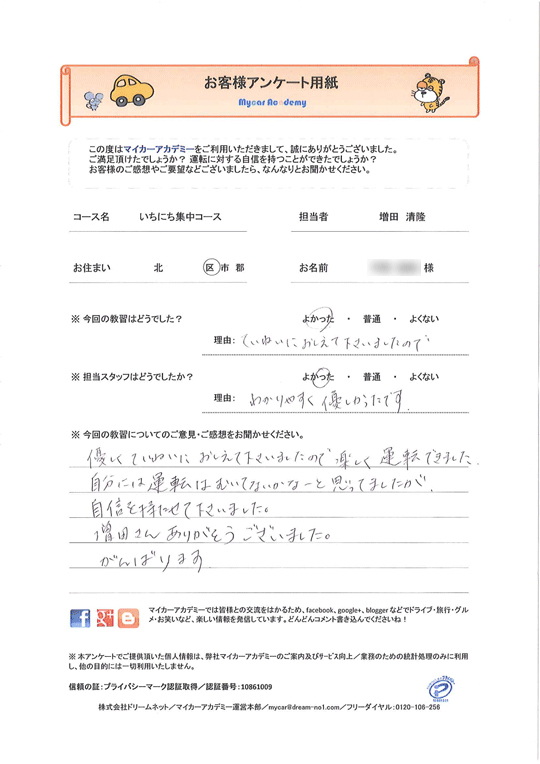 お客様アンケート用紙
Mycar Academy
この度はマイカーアカデミーをご利用いただきまして、誠にありがとうございました。
ご満足頂けたでしょうか？ 運転に対する自信を持つことができたでしょうか？
お客様のご感想やご要望などございましたら、なんなりとお聞かせください。
コース名 いちにち集中コース 担当者 増田 清隆
お住まい 北 区 市 郡 お名前 様
※ 今回の教習はどうでした？ よかった ・ 普通 ・ よくない
理由： ていねいにおしえて下さいましたので
※ 担当スタッフはどうでしたか？ よかった ・ 普通 ・ よくない
理由： わかりやすく優しかったです。
※ 今回の教習についてのご意見・ご感想をお聞かせください。
優しくていねいにおしえて下さいましたので楽しく運転できました。
自分には運転はむいてないかなーと思ってましたが、
自信を持たせて下さいました。
増田さんありがとうございました。
がんばります
マイカーアカデミーでは皆様との交流をはかるため、facebook、google+、blogger などでドライブ・旅行・グル
メ・お笑いなど、楽しい情報を発信しています。どんどんコメント書き込んでくださいね！
※ 本アンケートでご提供頂いた個人情報は、弊社マイカーアカデミーのご案内及びサービス向上／業務のための統計処理のみに利用
し、他の目的には一切利用いたしません。
信頼の証：プライバシーマーク認証取得／認証番号：10861009
株式会社ドリームネット／マイカーアカデミー運営本部／mycar@dream-no1.com／フリーダイヤル：0120-106-256